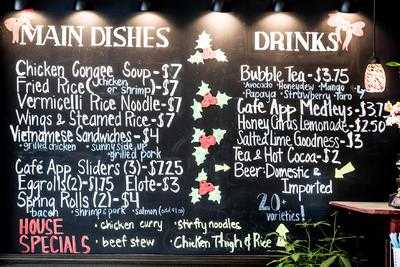 MAIN DISHES
Chicken Congee Soup-$7
Fried Rice (chicken or shrimp)-$7
Vermicelli Rice Noodle-$7
Wings & Steamed Rice-$7
Vietnamese Sandwiches-$4
·grilled chicken ·sunny side up
·grilled pork
Café App Sliders (3)-$7.25
Eggrolls(2)-$1.75 Elote-$3
Spring Rolls (2)-$4
·bacon ·shrimp & pork ·salmon
HOUSE SPECIALS
·chicken curry ·stirfry noodles
·beef stew ·Chicken Thigh & Rice
DRINKS
Bubble Tea-$3.75
·Avocado ·Honeydew ·Mango
·Papaya ·Strawberry ·Taro
Cafe App Medleys-$3.7
Honey Citrus Lemonade-$2.50
Salted Lime Goodness-$3
Tea & Hot Cocoa-$2
Beer: Domestic &
Imported
20+
varieties!